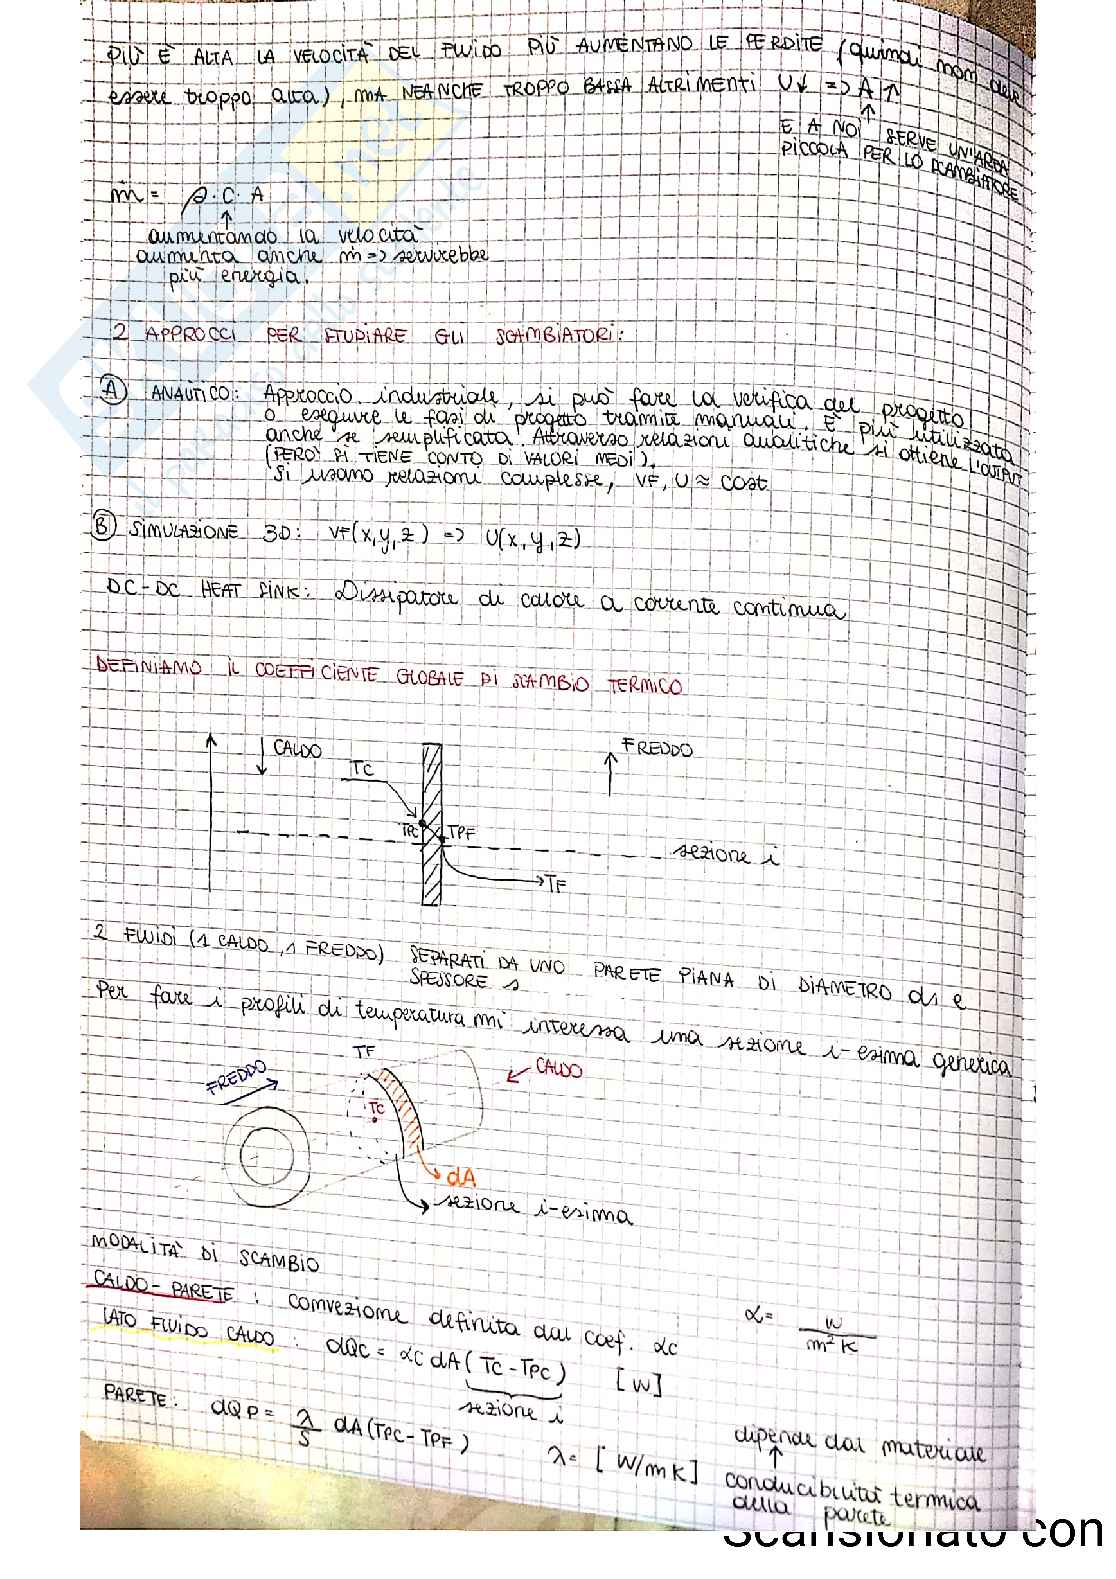 PIÙ È ALTA LA VELOCITÀ DEL FLUIDO PIÙ AUMENTANO LE PERDITE (quindi non deve
essere troppo alta), MA NEANCHE TROPPO BASSA ALTRIMENTI U↓ => A↑
E A NOI SERVE UN'AREA
PICCOLA PER LO SCAMBIATORE
ṁ = ρ · C · A
aumentando la velocità
aumenta anche ṁ => servirebbe
più energia.
2 APPROCCI PER STUDIARE GLI SCAMBIATORI:
A ANALITICO: Approccio industriale, si può fare la verifica del progetto
o eseguire le fasi di progetto tramite manuali. È più utilizzata
anche se semplificata. Attraverso relazioni analitiche si ottiene l'OUTPUT
(PERÒ SI TIENE CONTO DI VALORI MEDI).
Si usano relazioni complesse, VF, U ≈ cost
B SIMULAZIONE 3D: VF(x,y,z) => U(x,y,z)
DC-DC HEAT SINK: Dissipatore di calore a corrente continua
DEFINIAMO IL COEFFICIENTE GLOBALE DI SCAMBIO TERMICO
CALDO
FREDDO
TC
TPC
TPF
sezione i
TF
2 FLUIDI (1 CALDO, 1 FREDDO) SEPARATI DA UNO PARETE PIANA DI DIAMETRO d1 e
SPESSORE s
Per fare i profili di temperatura mi interessa una sezione i-esima generica
TF
FREDDO
CALDO
TC
dA
sezione i-esima
MODALITÀ DI SCAMBIO
CALDO-PARETE: convezione definita dal coef. αc
α = W / m²K
LATO FLUIDO CALDO: dQc = αc dA (Tc - TPC) [W]
sezione i
PARETE: dQP = λ/s dA (TPC - TPF) λ = [W/mK]
dipende dal materiale
conducibilità termica
della parete
Scansionato con